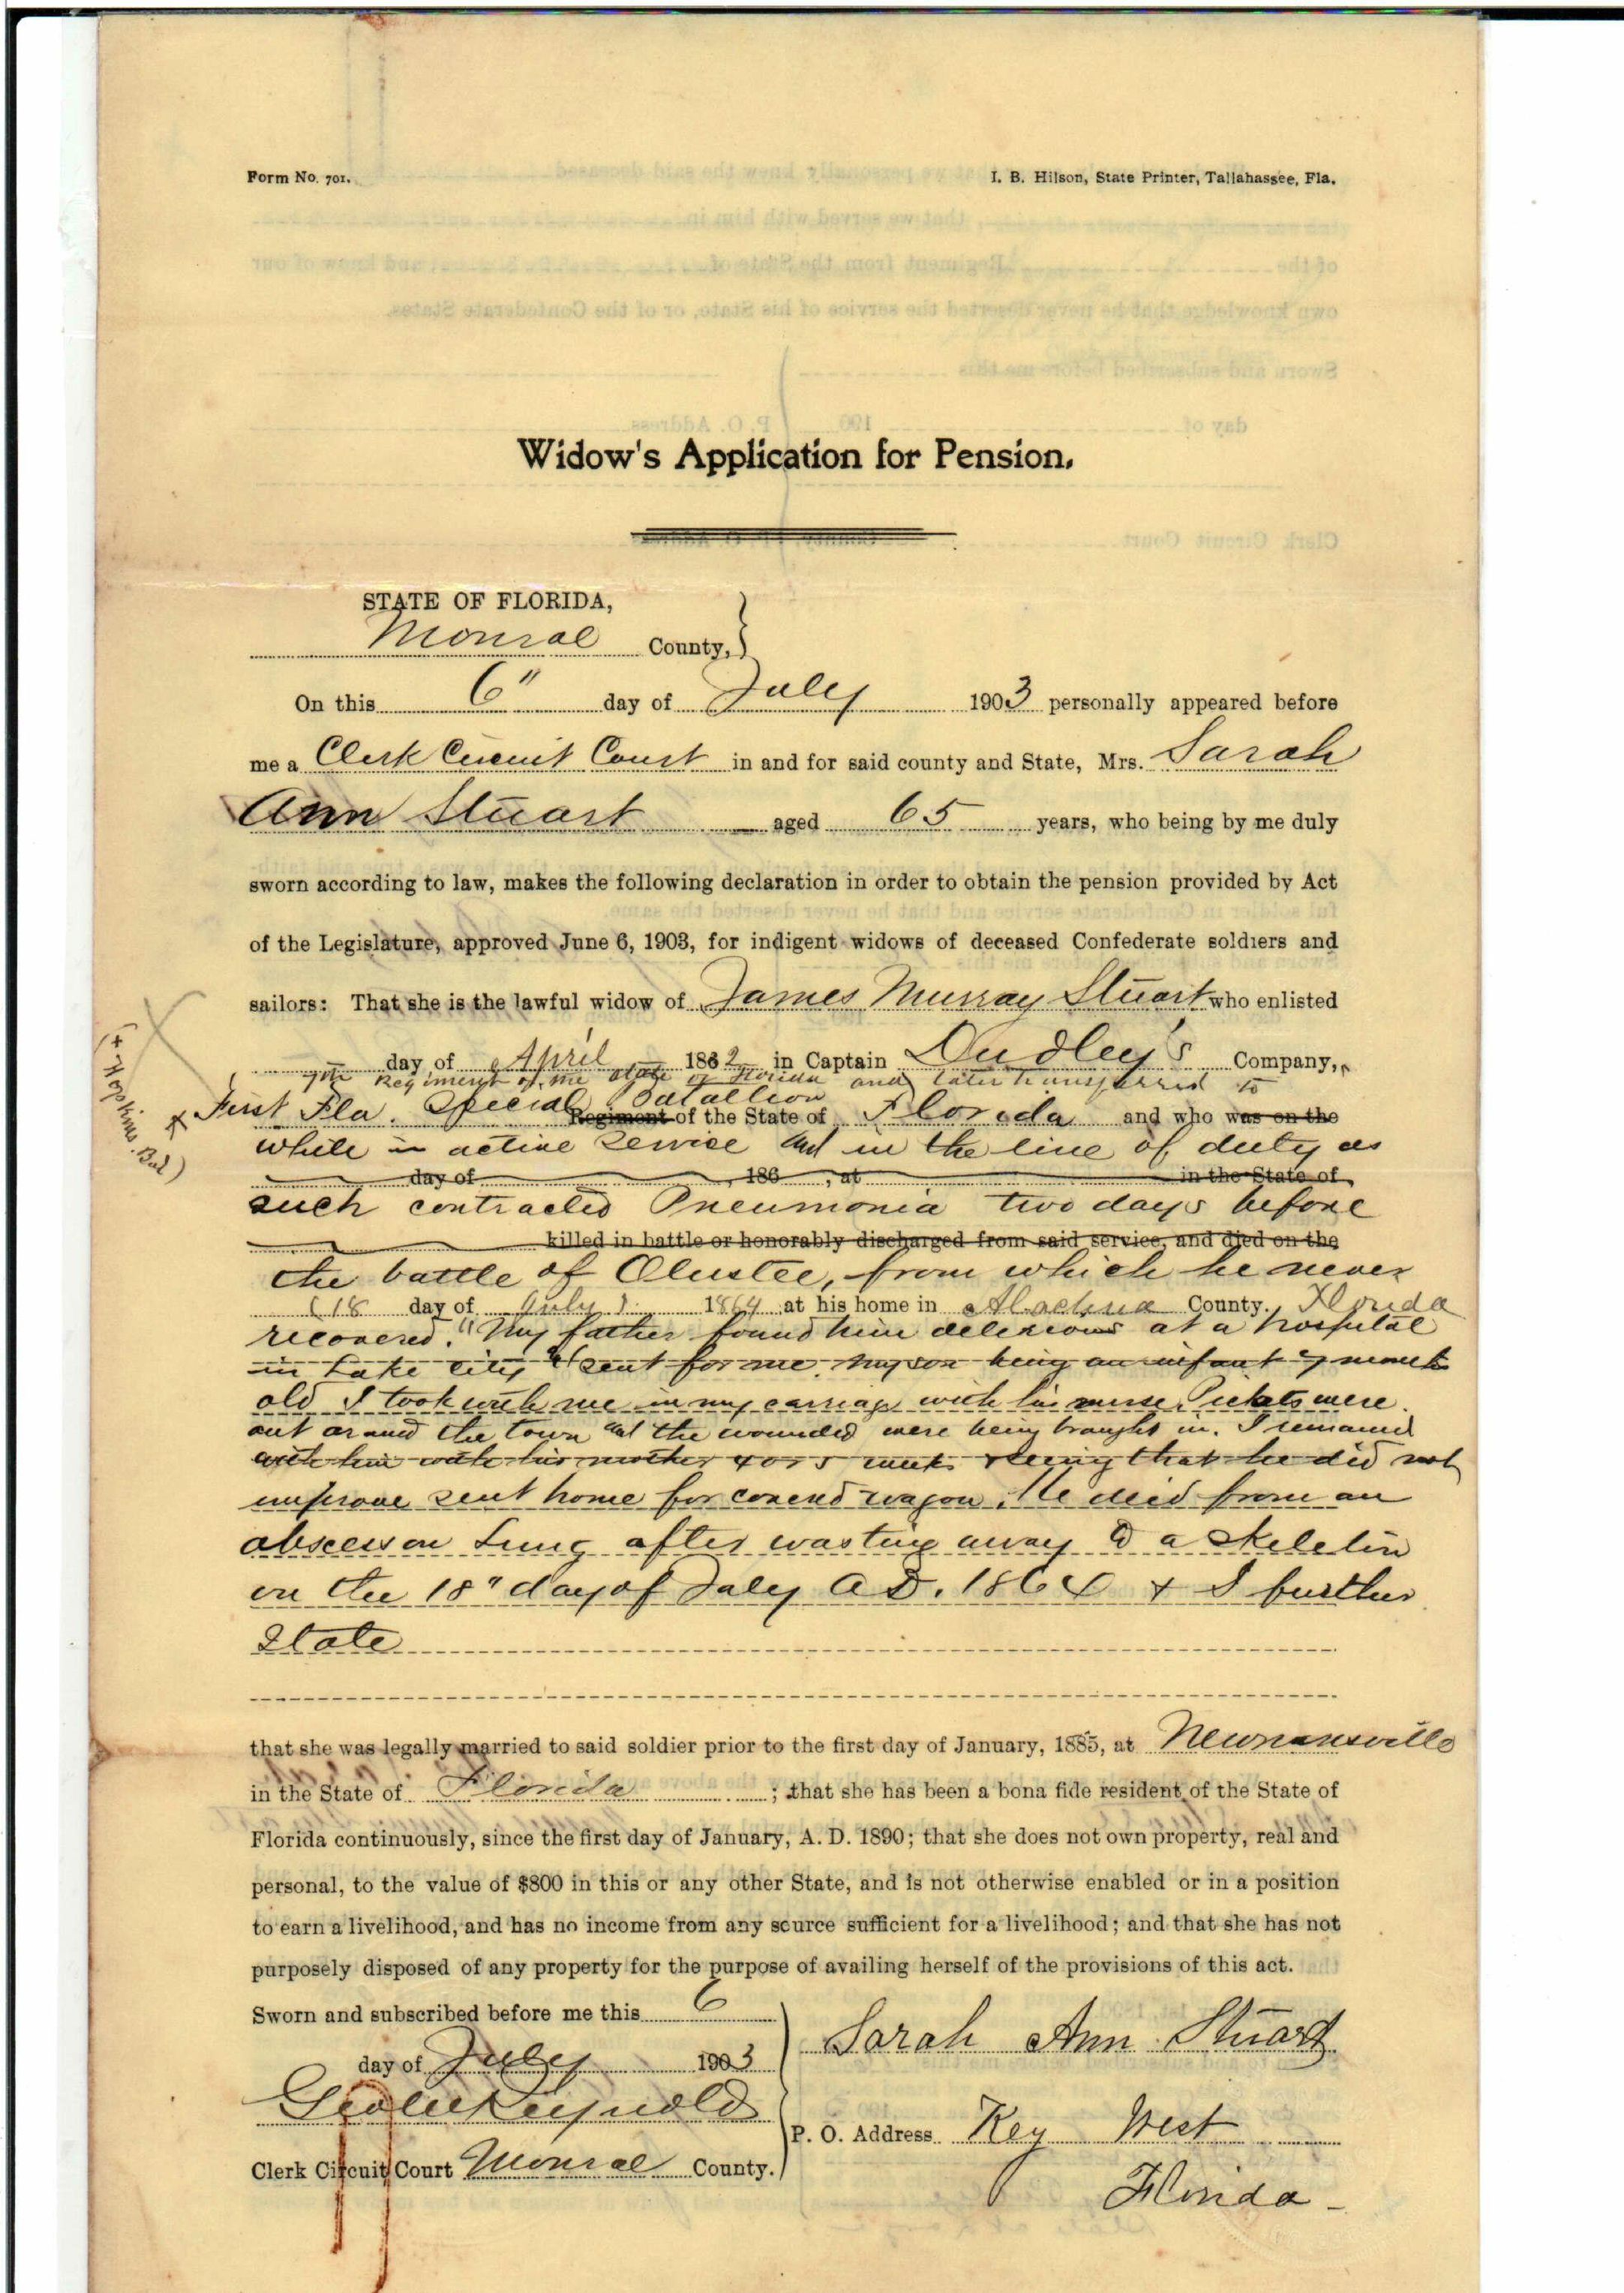 Form No. 701.
I. B. Hilson, State Printer, Tallahassee, Fla.
Widow's Application for Pension.
STATE OF FLORIDA,
Monroe County,
On this 6" day of July 1903 personally appeared before
me a Clerk Circuit Court in and for said county and State, Mrs. Sarah
Ann Stuart aged 65 years, who being by me duly
sworn according to law, makes the following declaration in order to obtain the pension provided by Act
of the Legislature, approved June 6, 1903, for indigent widows of deceased Confederate soldiers and
sailors: That she is the lawful widow of James Murray Stuart who enlisted
day of April 1862 in Captain Dudley's Company,
7th Regiment of the State of Florida and later transferred to
First Fla. Special Batallion
Regiment of the State of Florida and who was on the
(+ Hopkins Bat)
while in active service and in the line of duty as
day of , 186 , at in the State of
such contracted Pneumonia two days before
killed in battle or honorably discharged from said service, and died on the
the battle of Olustee, from which he never
(18 day of July) 1864 at his home in Alachua County, Florida
recovered. "My father found him delerious at a hospital
in Lake City & sent for me. My son being an infant 7 months
old I took with me in my carriage with his nurse. Pickets were
out around the town and the wounded were being brought in. I remained
with him with his mother 4 or 5 weeks seeing that he did not
improve sent home for covered wagon. He died from an
abscess on Lung after wasting away to a skeleton
on the 18" day of July A.D. 1864 + I further
State
that she was legally married to said soldier prior to the first day of January, 1885, at Newnansville
in the State of Florida ; that she has been a bona fide resident of the State of
Florida continuously, since the first day of January, A. D. 1890; that she does not own property, real and
personal, to the value of $800 in this or any other State, and is not otherwise enabled or in a position
to earn a livelihood, and has no income from any source sufficient for a livelihood; and that she has not
purposely disposed of any property for the purpose of availing herself of the provisions of this act.
Sworn and subscribed before me this 6
day of July 1903
Reynolds
Clerk Circuit Court Monroe County.
Sarah Ann Stuart
P. O. Address Key West
Florida